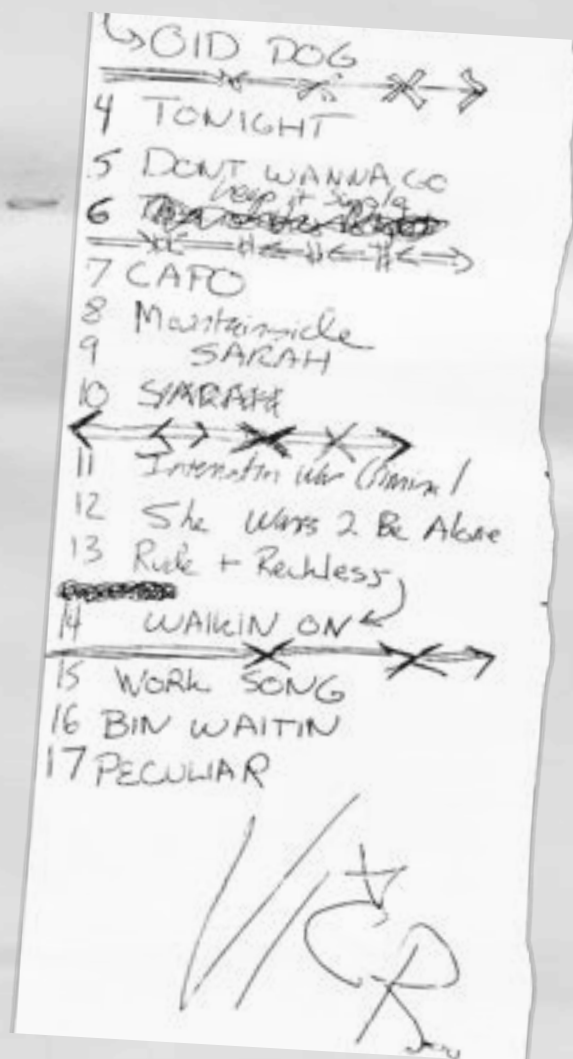 OlD DOG
4 TONIGHT
5 DONT WANNA GO
keep it simple
6
7 CAPO
8 Mountainside
9 SARAH
10 SARAH
11 War Criminal
12 She Wans 2 Be Alone
13 Rude + Reckless
14 WALKIN ON
15 WORK SONG
16 BIN WAITIN
17 PECULIAR